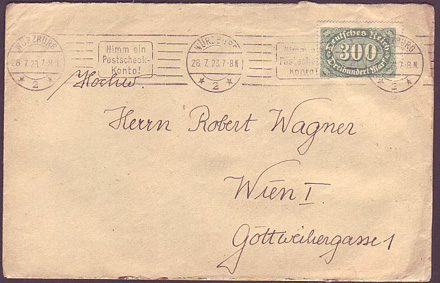 WÜRZBURG
28.7.23.7-8N.
2
Nimm ein
Postscheck-
Konto!
WÜRZBURG
28.7.23.7-8N.
2
Nimm ein
Postscheck-
Konto!
Deutsches Reich
300
Dreihundert Mark
WÜRZBURG
7-8N.
2
Herrn Robert Wagner
Wien I.
Göttweihergasse 1